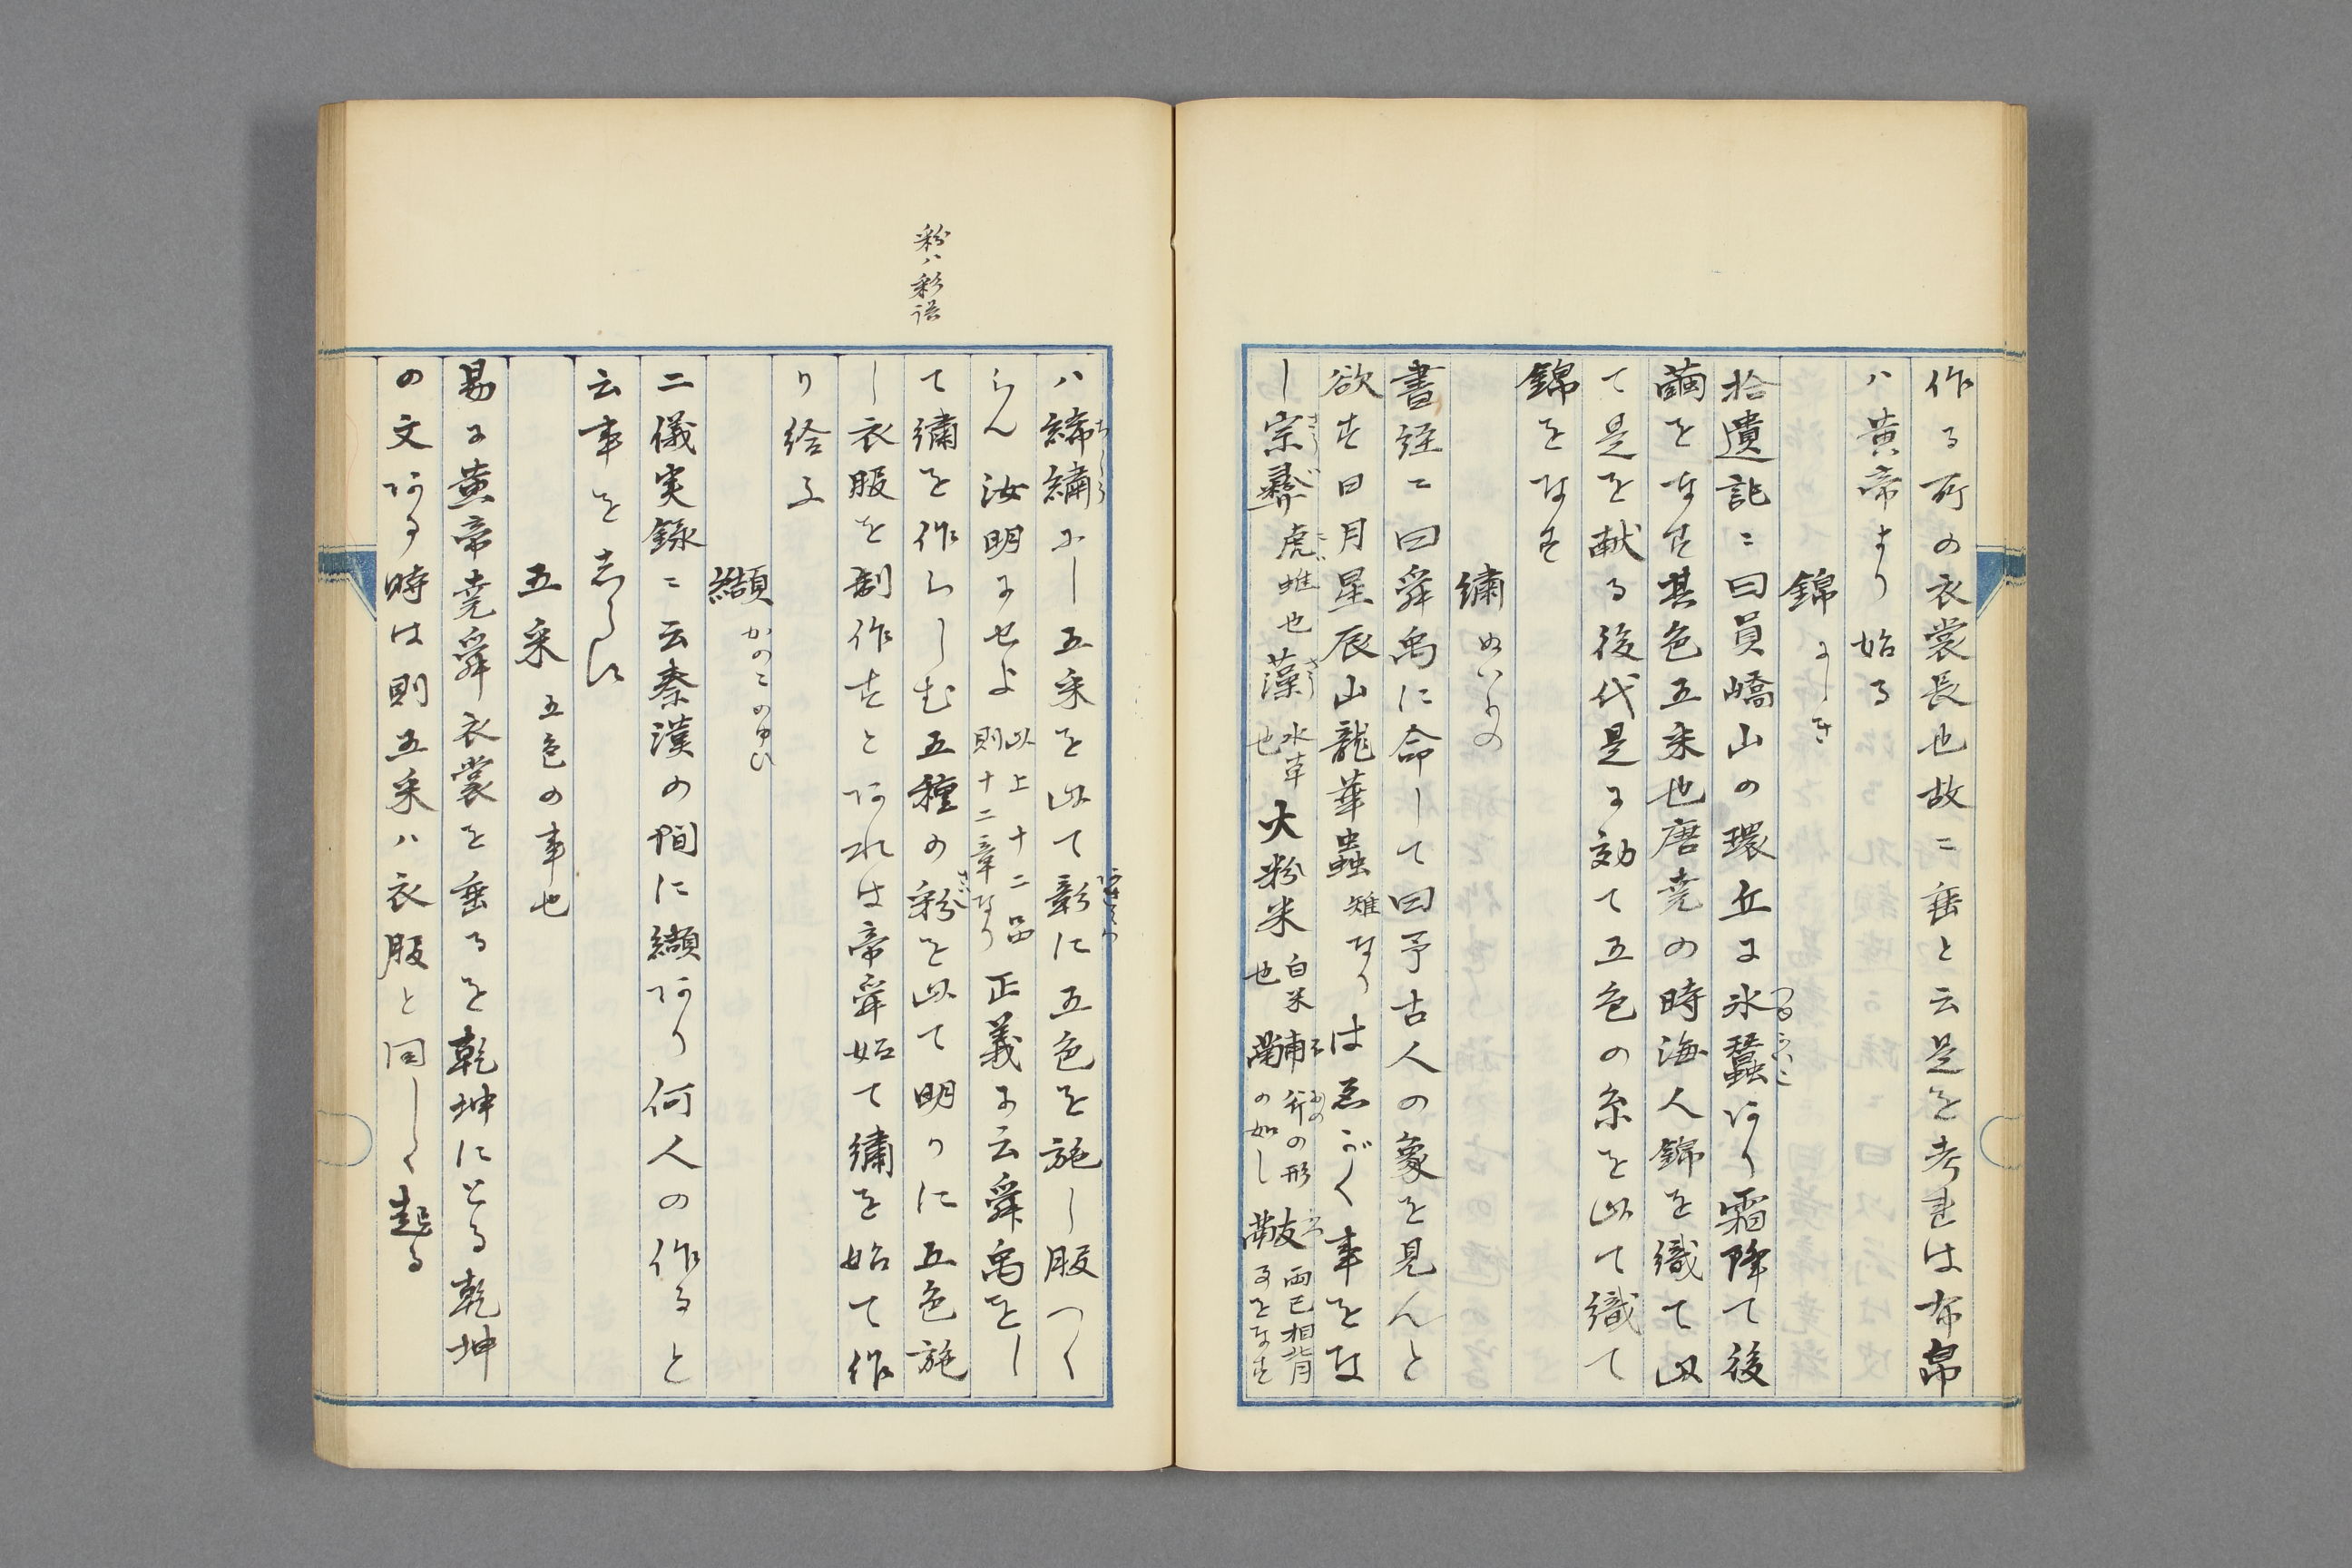 作る所の衣裳長也故ニ垂と云是を考れは布帛
ハ黄帝より始る
錦 にしき
拾遺記ニ曰員嶠山の環丘に氷蠶あり霜降て後
繭をなす其色五采也唐堯の時海人錦を織て以
て是を献る後代是に効て五色の糸を以て織て
錦をなす
繍 ぬいもの
書経ニ曰舜禹に命して曰予古人の象を見んと
欲す日月星辰山龍華蟲 雉なり はゑがく事をな
し宗彝 虎蜼也 藻 水草也 火粉米 白米也 黼 斧の形の如し 黻 両已相背
ハ絺繍にし五采を以て彰に五色を施し服つく
らん汝明にせよ 以上十二品則十二章なり 正義に云舜禹をし
て繍を作らしむ五種の粉を以て明りに五色施
し衣服を制作すとあれは帝舜始て繍を始て作
り給ふ
纈 かのこのゆひ
二儀実録ニ云秦漢の間に纈あり何人の作ると
云事をしらす
五采 五色の事也
易に黄帝堯舜衣裳を垂るを乾坤にとる乾坤
の文ある時は則五采ハ衣服と同しく起る
粉ハ彩誤